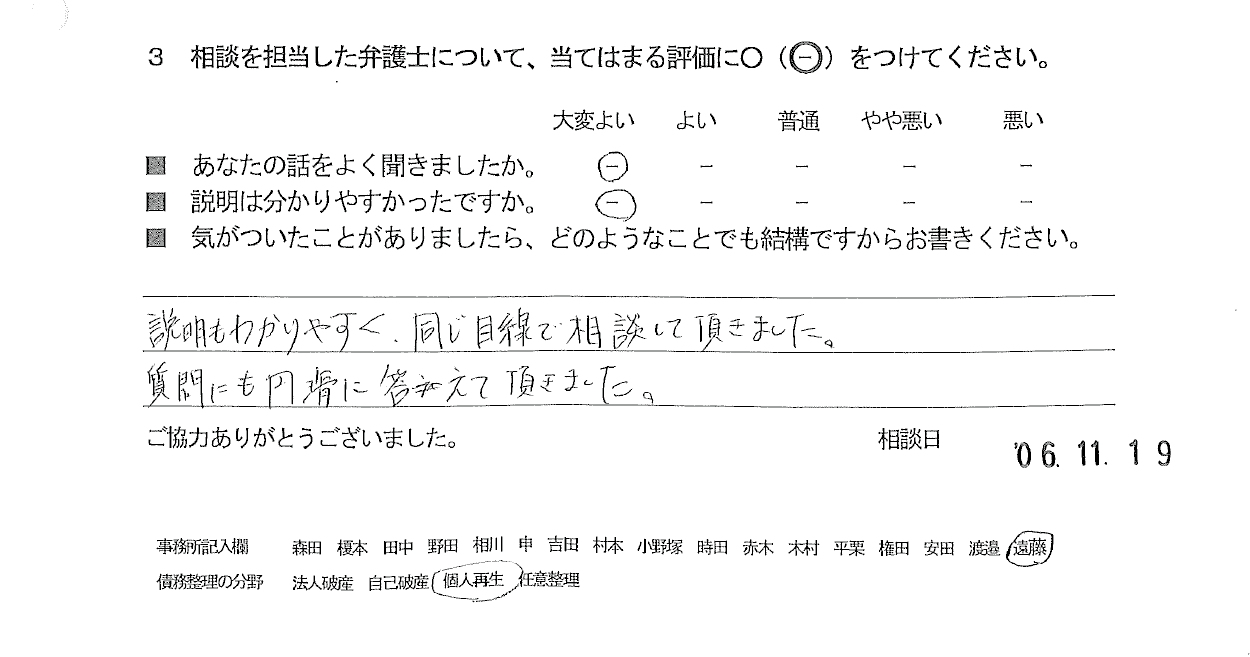 3 相談を担当した弁護士について、当てはまる評価に○（㊀）をつけてください。
大変よい よい 普通 やや悪い 悪い
■ あなたの話をよく聞きましたか。 － － － － －
■ 説明は分かりやすかったですか。 － － － － －
■ 気がついたことがありましたら、どのようなことでも結構ですからお書きください。
説明もわかりやすく、同じ目線で相談して頂きました。
質問にも円滑に答えて頂きました。
ご協力ありがとうございました。 相談日 '06.11.19
事務所記入欄 森田 榎本 田中 野田 相川 申 吉田 村本 小野塚 時田 赤木 木村 平栗 権田 安田 渡邉 遠藤
債務整理の分野 法人破産 自己破産 個人再生 任意整理